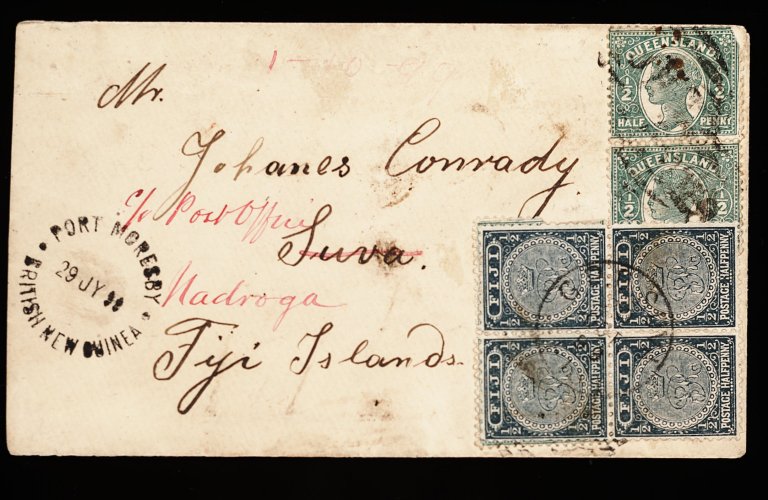 1-10-99
Mr.
Johanes Conrady.
c/o Post Office
Suva.
Nadroga
Fiji Islands.
PORT MORESBY
29 JY 99
BRITISH NEW GUINEA
QUEENSLAND
1/2 1/2
HALF PENNY
QUEENSLAND
1/2 1/2
FIJI
POSTAGE HALFPENNY.
1/2 1/2
FIJI
POSTAGE HALFPENNY.
1/2 1/2
FIJI
POSTAGE HALFPENNY.
1/2 1/2
FIJI
POSTAGE HALFPENNY.
1/2 1/2